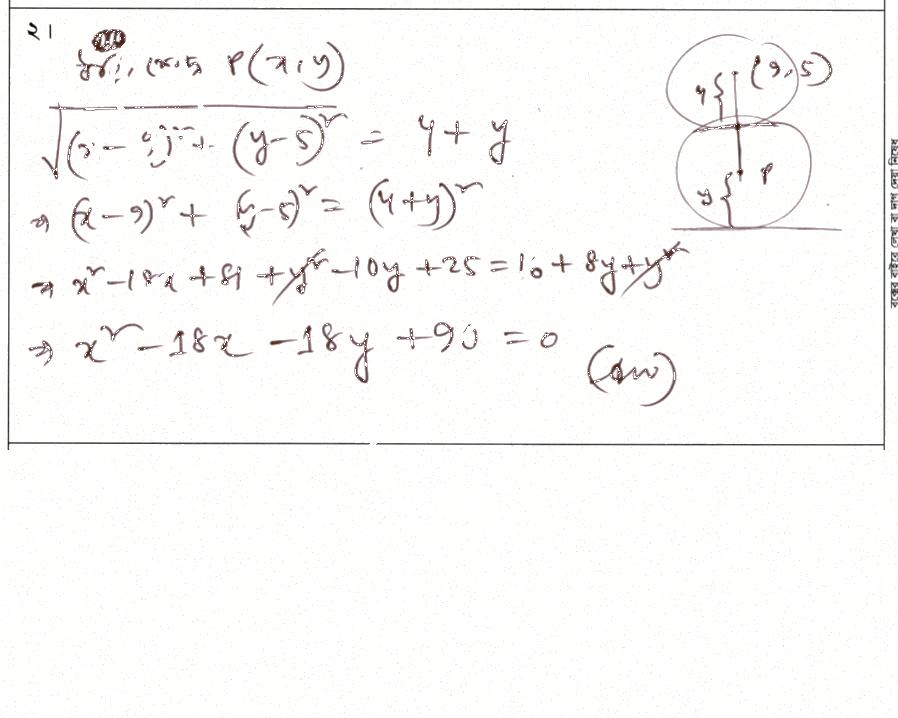 ২।
ধরি, কেন্দ্র P(x,y)
(9,5)
4
√(x-9)² + (y-5)² = 4+y
⇒ (x-9)² + (y-5)² = (4+y)²
P
y
⇒ x² -18x +81 +y² -10y +25 = 16 + 8y + y²
⇒ x² -18x -18y +90 = 0
(Ans)
বক্সের বাইরে লেখা বা দাগ দেয়া নিষেধ